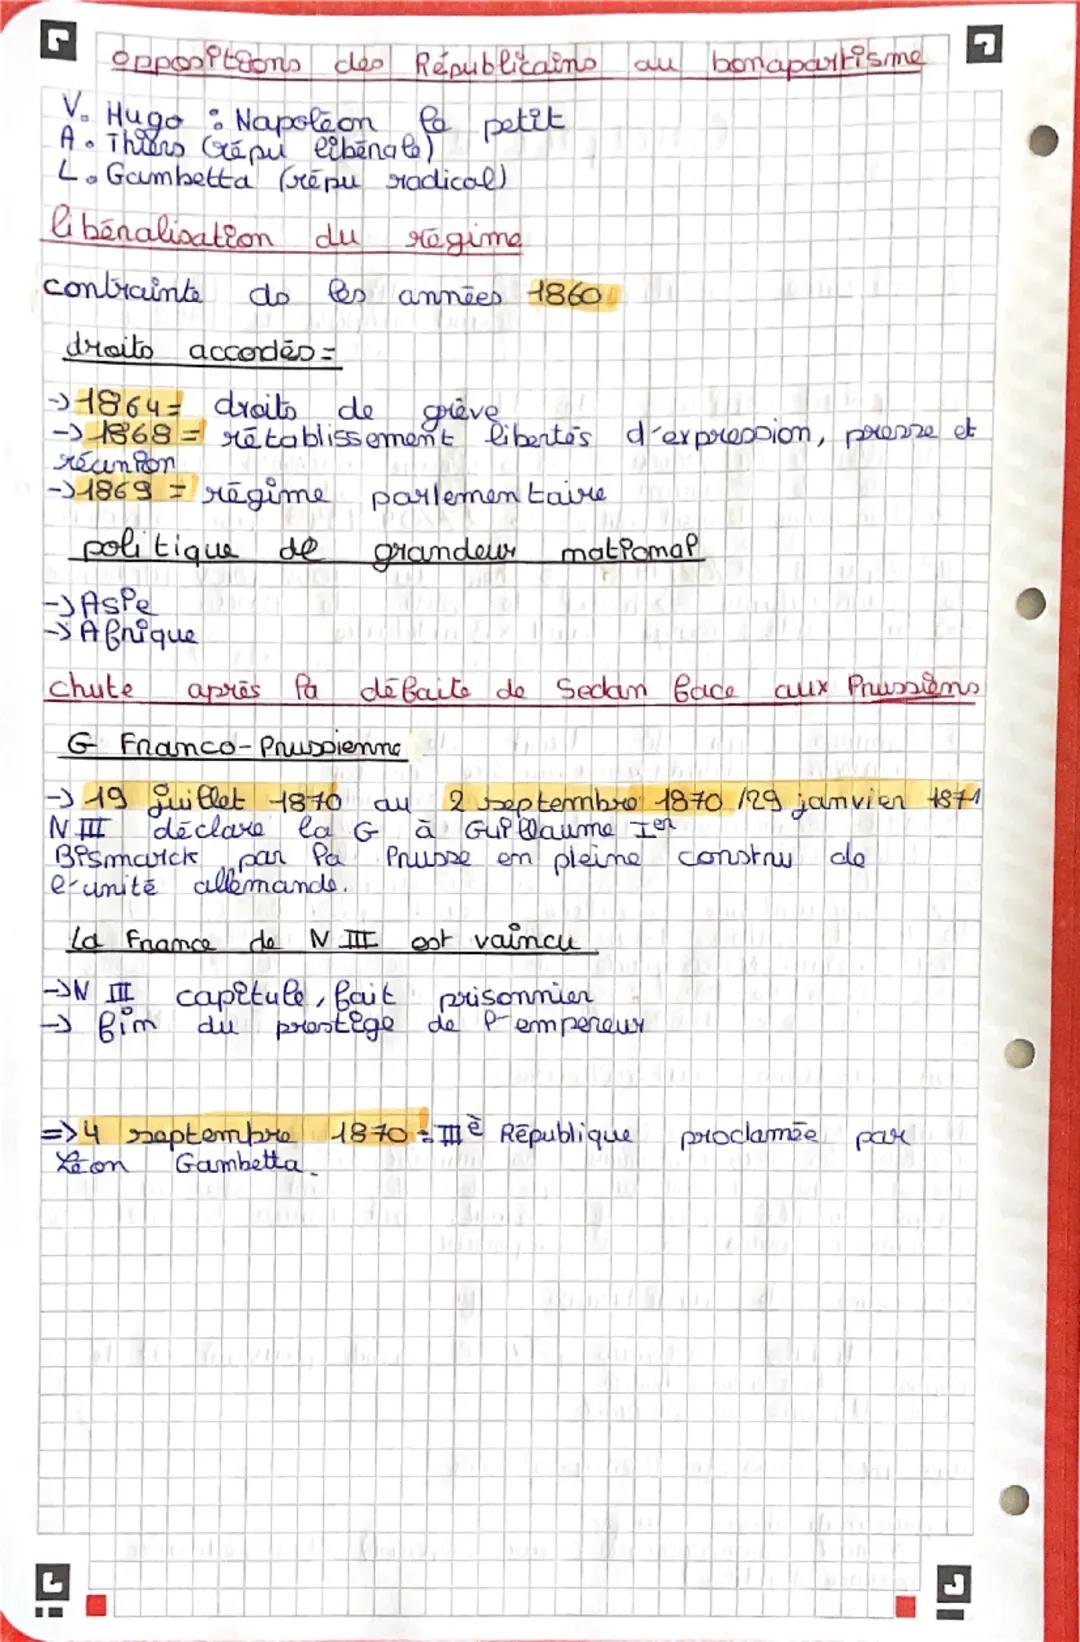 oppositions des Républicains au bonapartisme
V. Hugo : Napoléon le petit
A. Thiers (répu libérale)
L. Gambetta (répu radical)
libéralisation du régime
contrainte ds les années 1860
droits accordés =
-> 1864 = droits de grève
-> 1868 = rétablissement libertés d'expression, presse et
réunion
-> 1869 = régime parlementaire
politique de grandeur national
-> Asie
-> Afrique
chute après la défaite de Sedan face aux Prussiens
G Franco-Prussienne
-> 19 juillet 1870 au 2 septembre 1870 /29 janvier 1871
N III déclare la G à Guillaume Ier
Bismarck par la Prusse en pleine constru de
l'unité allemande.
La France de N III est vaincu
-> N III capitule, fait prisonnier
-> fin du prestige de l'empereur
=> 4 septembre 1870 = IIIè République proclamée par
Léon Gambetta.